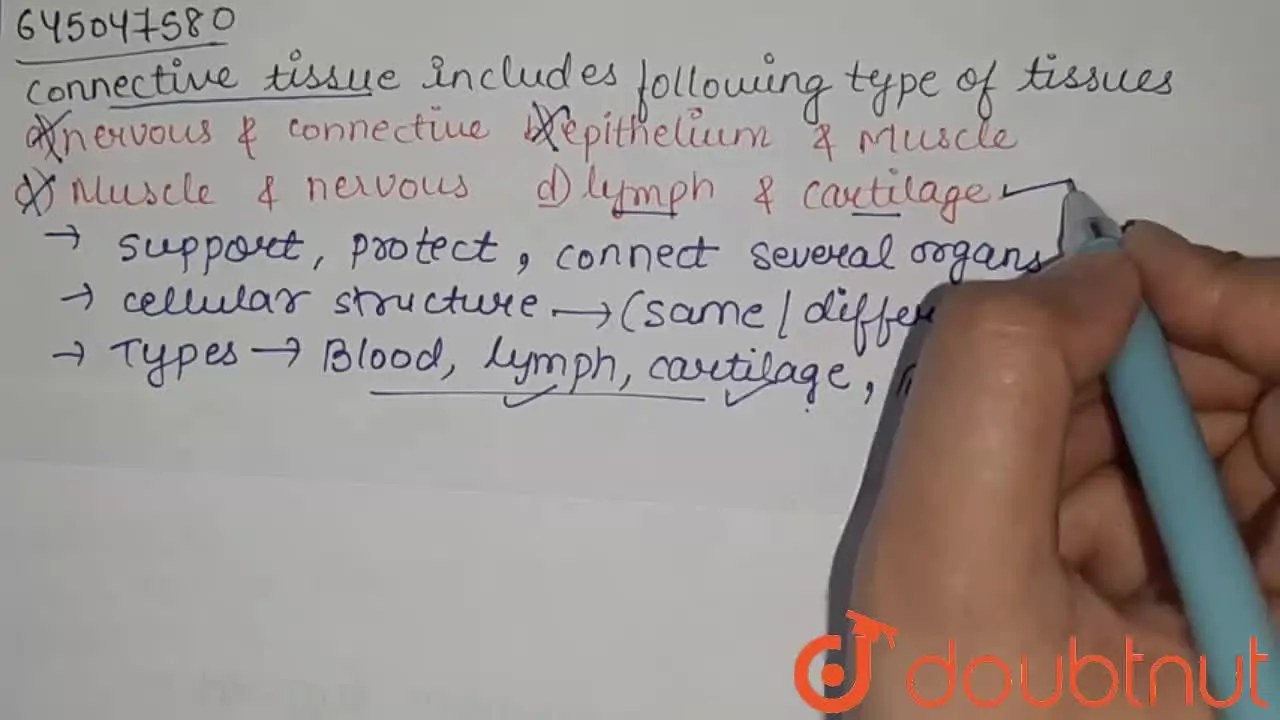 645047580
connective tissue includes following type of tissues
a) nervous & connective b) epithelium & Muscle
c) Muscle & nervous d) lymph & cartilage
→ support, protect, connect several organs
→ cellular structure → (same / differ
→ Types → Blood, lymph, cartilage,
doubtnut